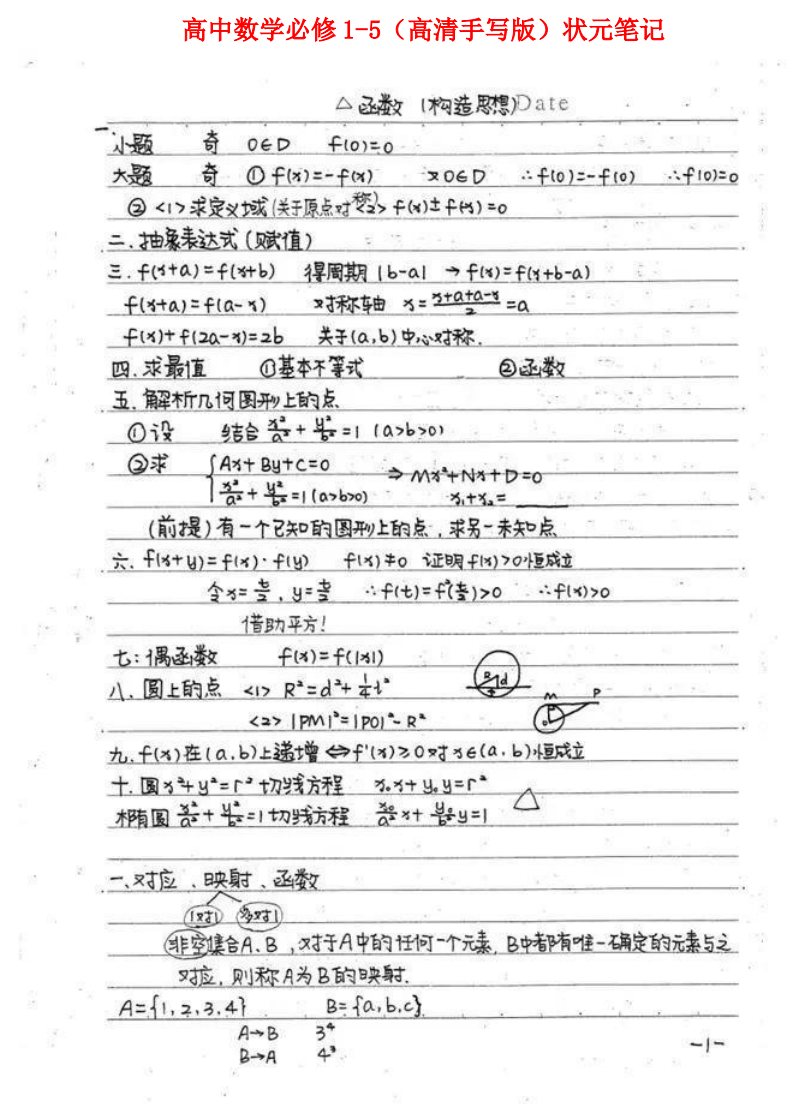 高中数学必修1-5（高清手写版）状元笔记
△ 函数 (构造思想) Date
一、小题 奇 0∈D f(0)=0
大题 奇 ① f(x)=-f(x) ∵0∈D ∴f(0)=-f(0) ∴f(0)=0
② <1>求定义域(关于原点对称) <2> f(x)±f(x)=0
二. 抽象表达式(赋值)
三. f(x+a)=f(x+b) 得周期 |b-a| → f(x)=f(x+b-a)
f(x+a)=f(a-x) 对称轴 x=(x+a+a-x)/2=a
f(x)+f(2a-x)=2b 关于(a,b)中心对称.
四. 求最值 ①基本不等式 ②函数
五. 解析几何图形上的点
①设 结合 x²/a²+y²/b²=1 (a>b>0)
②求 {Ax+By+C=0
x²/a²+y²/b²=1(a>b>0) ⇒ Mx²+Nx+D=0
x₁+x₂=____
(前提)有一个已知的图形上的点，求另一未知点
六. f(x+y)=f(x)·f(y) f(x)≠0 证明f(x)>0恒成立
令x=t/2, y=t/2 ∴f(t)=f²(t/2)>0 ∴f(x)>0
借助平方!
七：偶函数 f(x)=f(|x|)
八. 圆上的点 <1> R²=d²+1/4 l² R d
<2> |PM|²=|PO|²-R² M P O
九. f(x)在(a,b)上递增⇔f'(x)≥0对x∈(a,b)恒成立
十. 圆x²+y²=r²切线方程 x₀x+y₀y=r²
椭圆 x²/a²+y²/b²=1切线方程 x₀/a² x+y₀/b² y=1 △
一、对应、映射、函数
1对1 多对1
非空集合A、B，对于A中的任何一个元素，B中都有唯一确定的元素与之
对应，则称A为B的映射.
A={1,2,3,4} B={a,b,c}
A→B 3⁴
B→A 4³
-1-